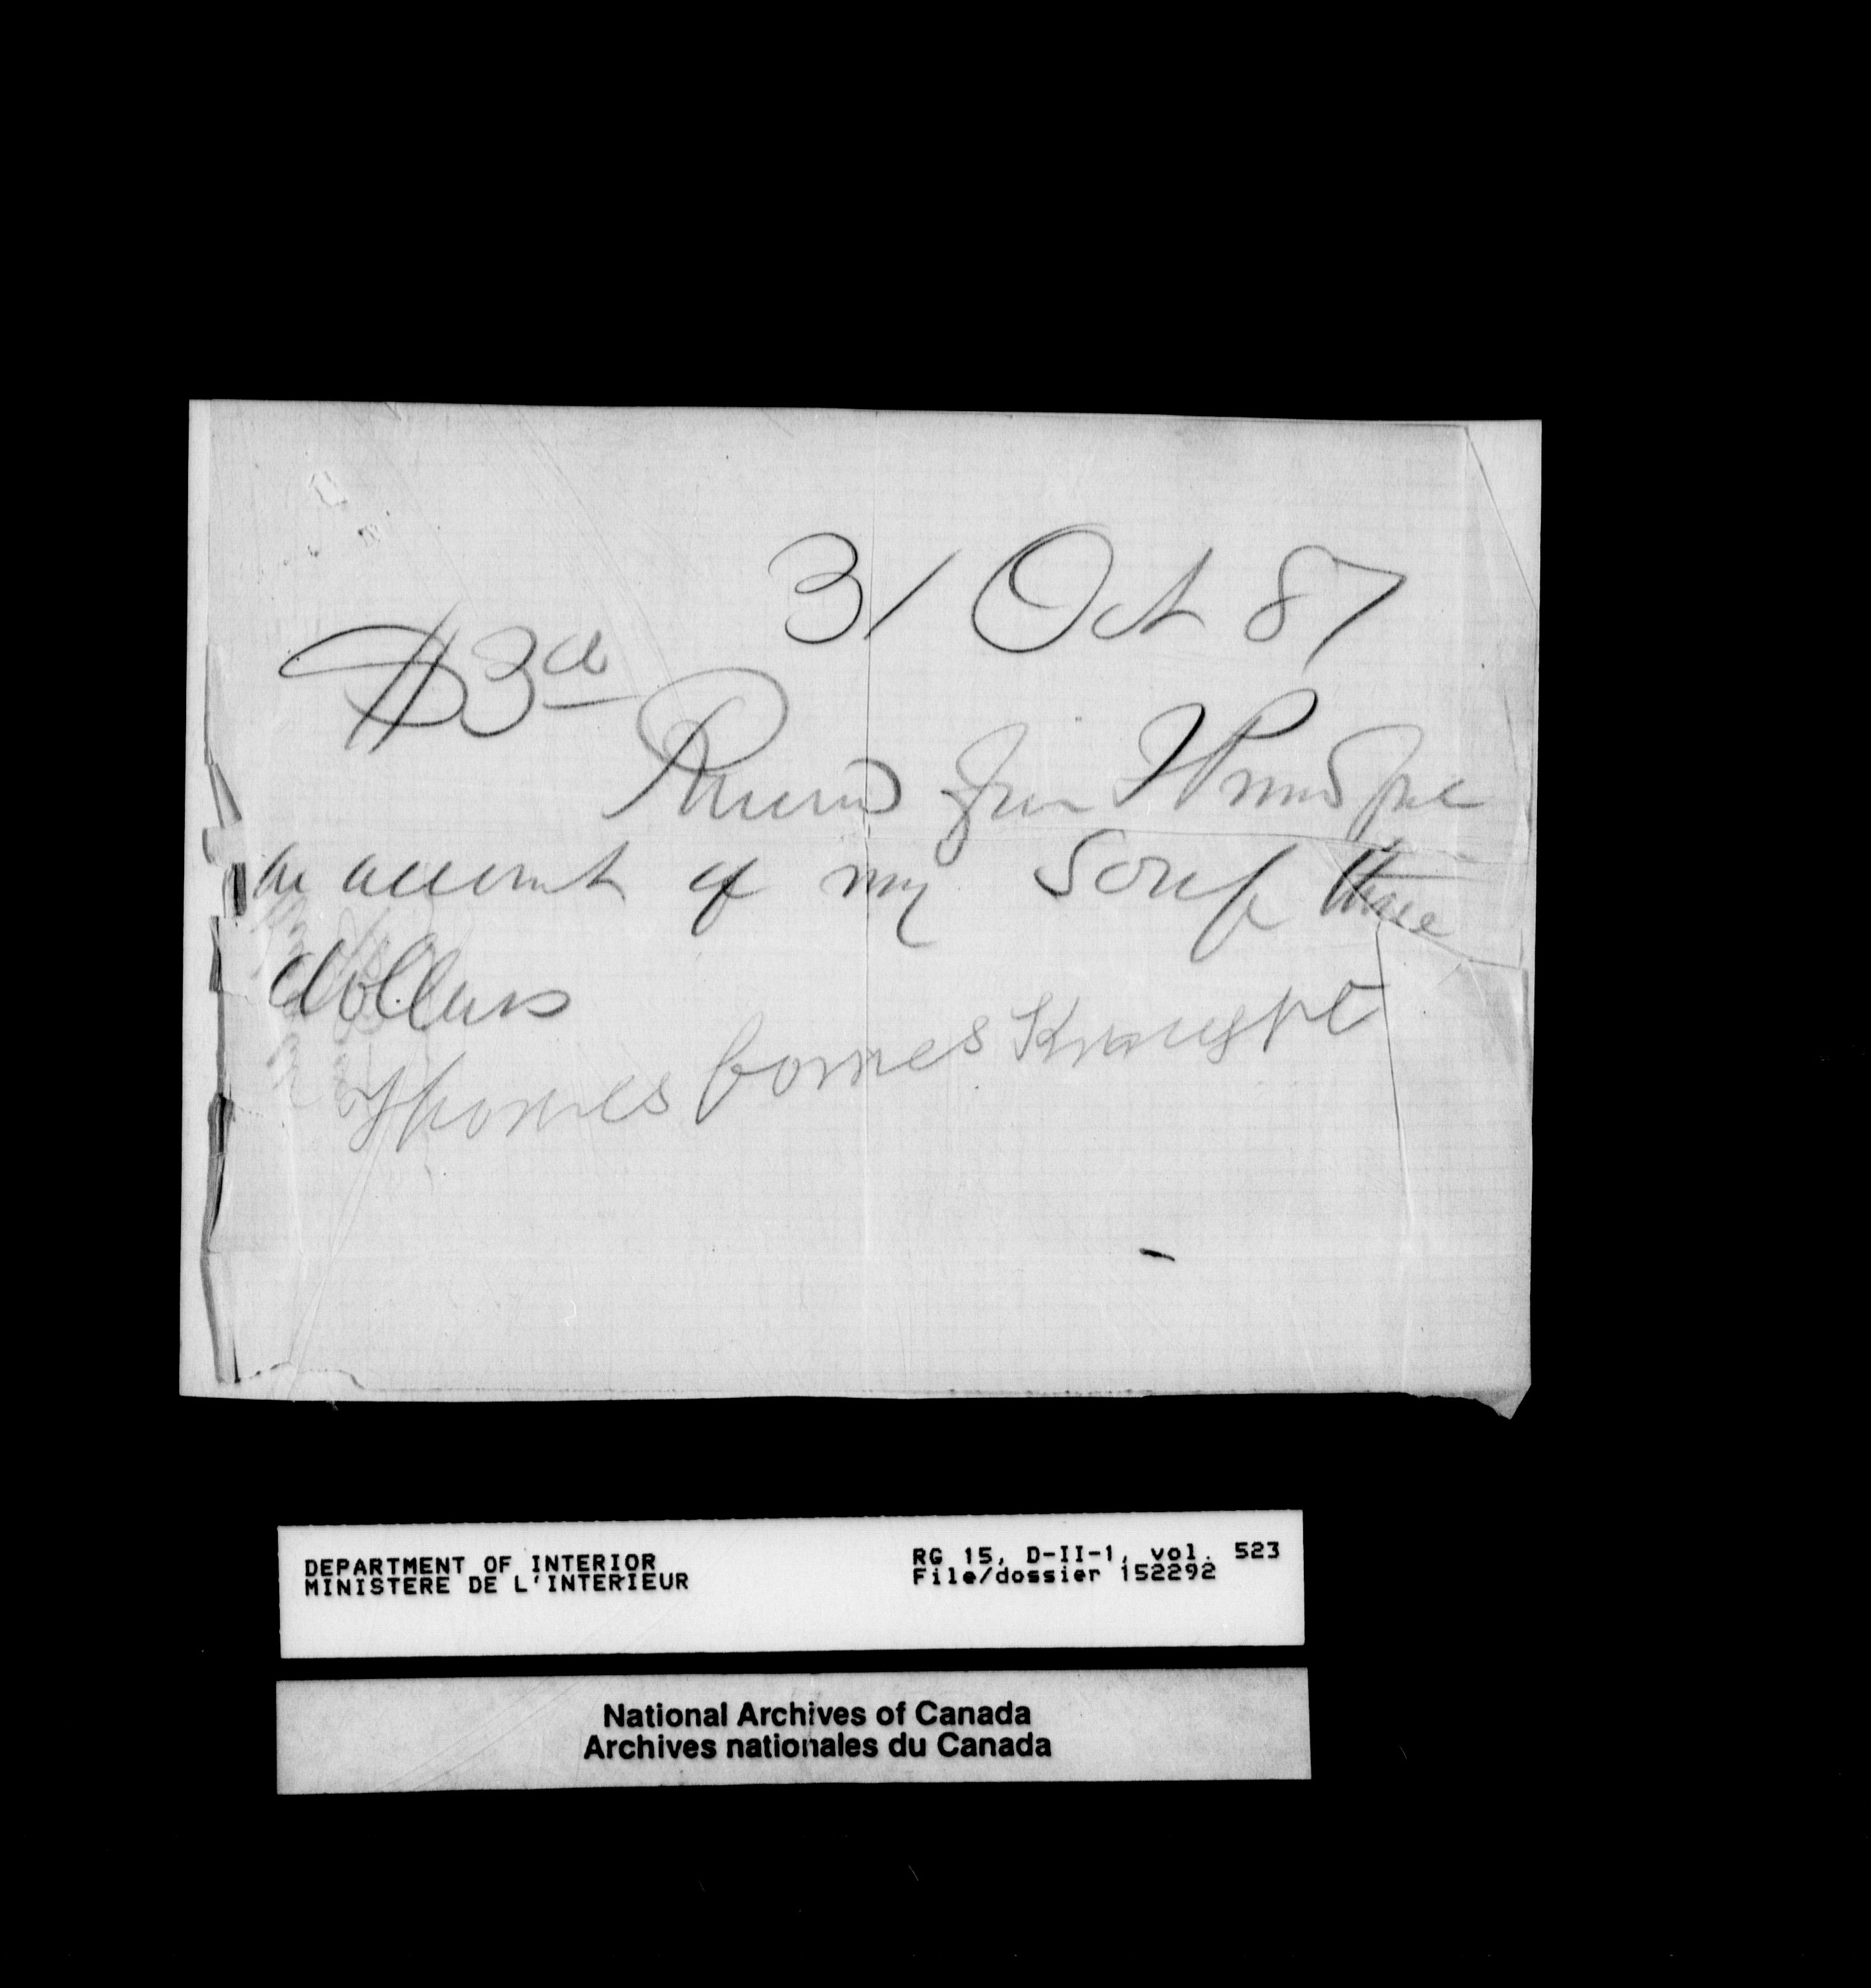 31 Oct 87
$3
Received from
on account of my Scrip three
dollars
Thomas
DEPARTMENT OF INTERIOR
MINISTERE DE L'INTERIEUR
RG 15, D-II-1, vol. 523
File/dossier 152292
National Archives of Canada
Archives nationales du Canada